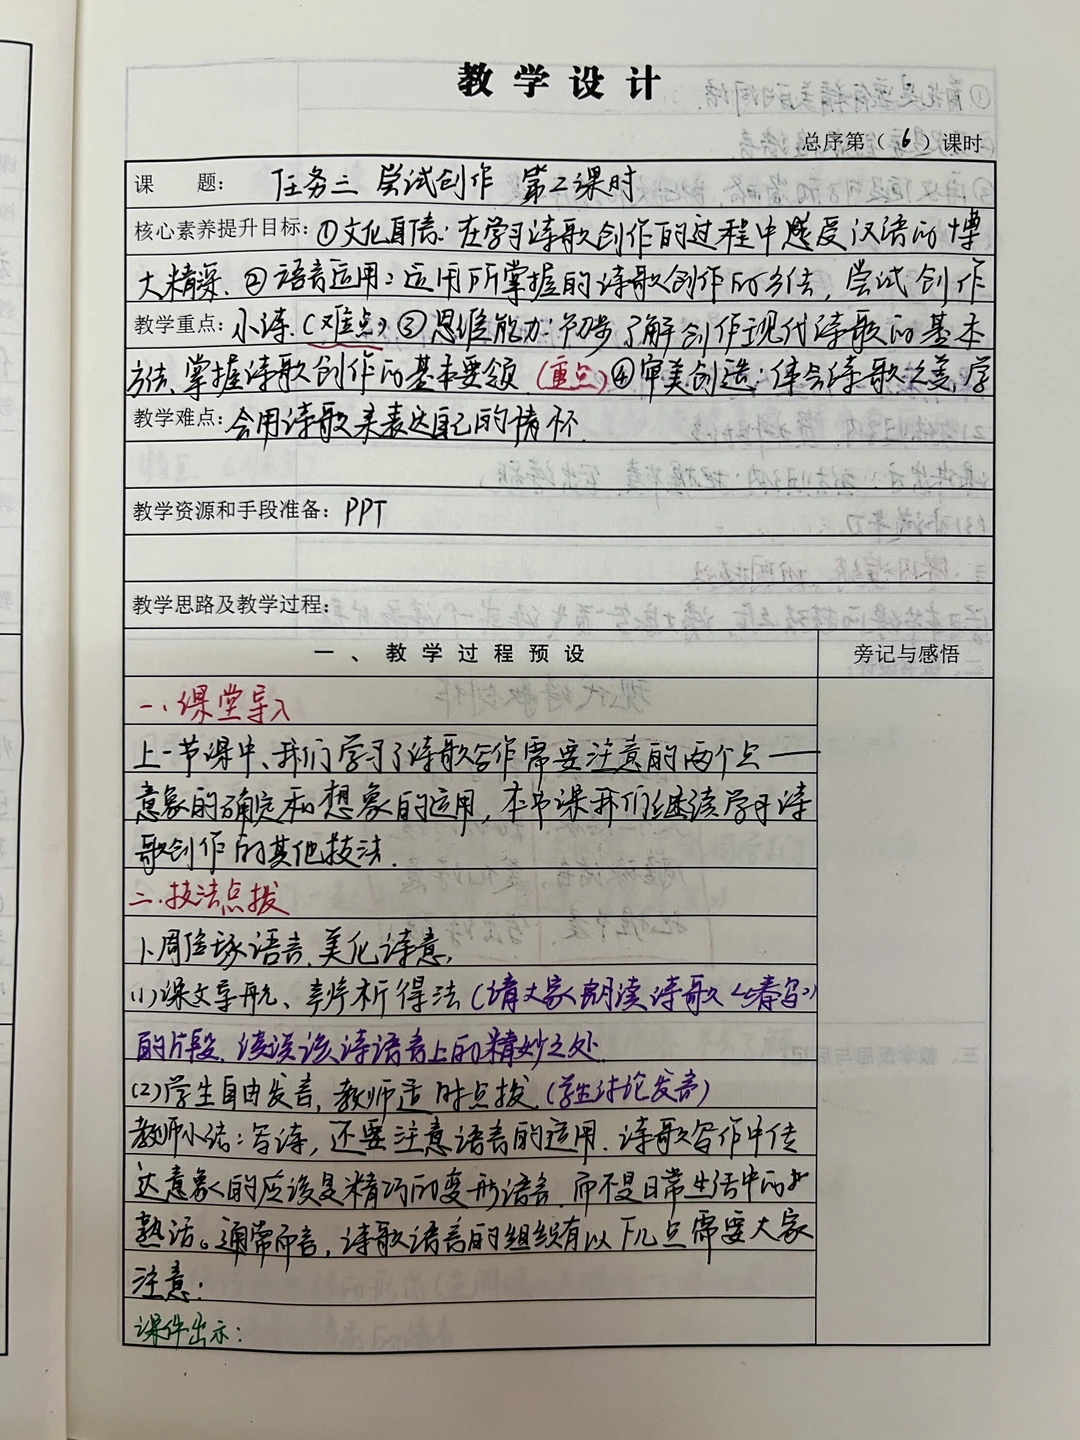 教学设计
总序第（6）课时
课 题：任务三 尝试创作 第2课时
核心素养提升目标：①文化自信：在学习诗歌创作的过程中感受汉语的博
大精深.②语言运用：运用所掌握的诗歌创作的方法，尝试创作
教学重点：小诗.(难点)③思维能力：初步了解创作现代诗歌的基本
方法、掌握诗歌创作的基本要领(重点)④审美创造：体会诗歌之美,学
教学难点：会用诗歌来表达自己的情怀.
教学资源和手段准备：PPT
教学思路及教学过程：
一、教学过程预设 旁记与感悟
一、课堂导入
上一节课中、我们学习了诗歌创作需要注意的两个点——
意象的确定和想象的运用，本节课我们继续学习诗
歌创作的其他技法.
二.技法点拨
1.雕琢语言.美化诗意,
(1)课文导航、
析得法(请大家朗读诗歌
的片段.谈谈该诗语言上的精妙之处.
(2)学生自由发言,教师适时点拨.(学生讨论发言)
教师小结：写诗，还要注意语言的运用.诗歌写作中传
达意象的应该是精巧的变形语言.而不是日常生活中的
熟语。通常而言，诗歌语言的组织有以下几点需要大家
注意：
课件出示：